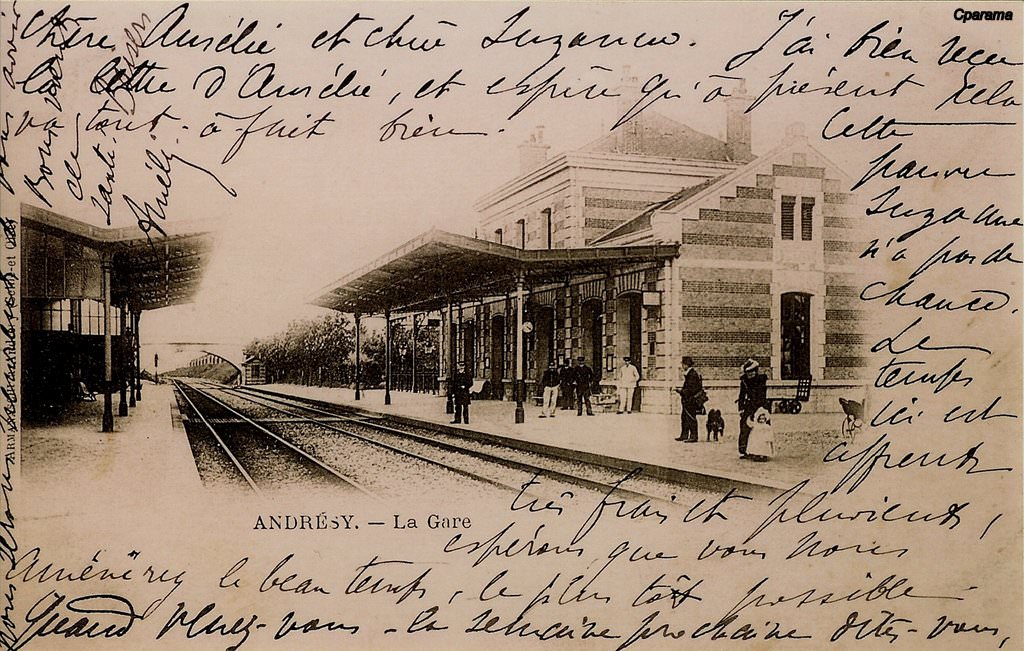 Cparama
Chère Aurélie et chère Suzanne. J'ai bien reçu
la lettre d'Aurélie, et espère qu'à présent cela
va tout-à-fait bien.
Cette
pauvre
Suzanne
n'a pas de
chance.
Le
temps
ici est
affreux
très frais et pluvieux,
espérons que vous nous
amènerez le beau temps, le plus tôt possible -
Quand venez-vous - la semaine prochaine dites-vous,
nous serons
Bons baisers
de
ANDRÉSY. — La Gare